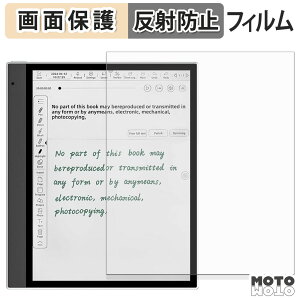 画面保護 反射防止 フィルム
No part of this book may bereproduced or transmitted in
any form or by anymeans, electronic, mechanical,
photocopying,
No part of this book may
bereproduced or transmitted in
any form or by anymeans,
electronic, mechanical,
photocopying.
MOTO
MOTO